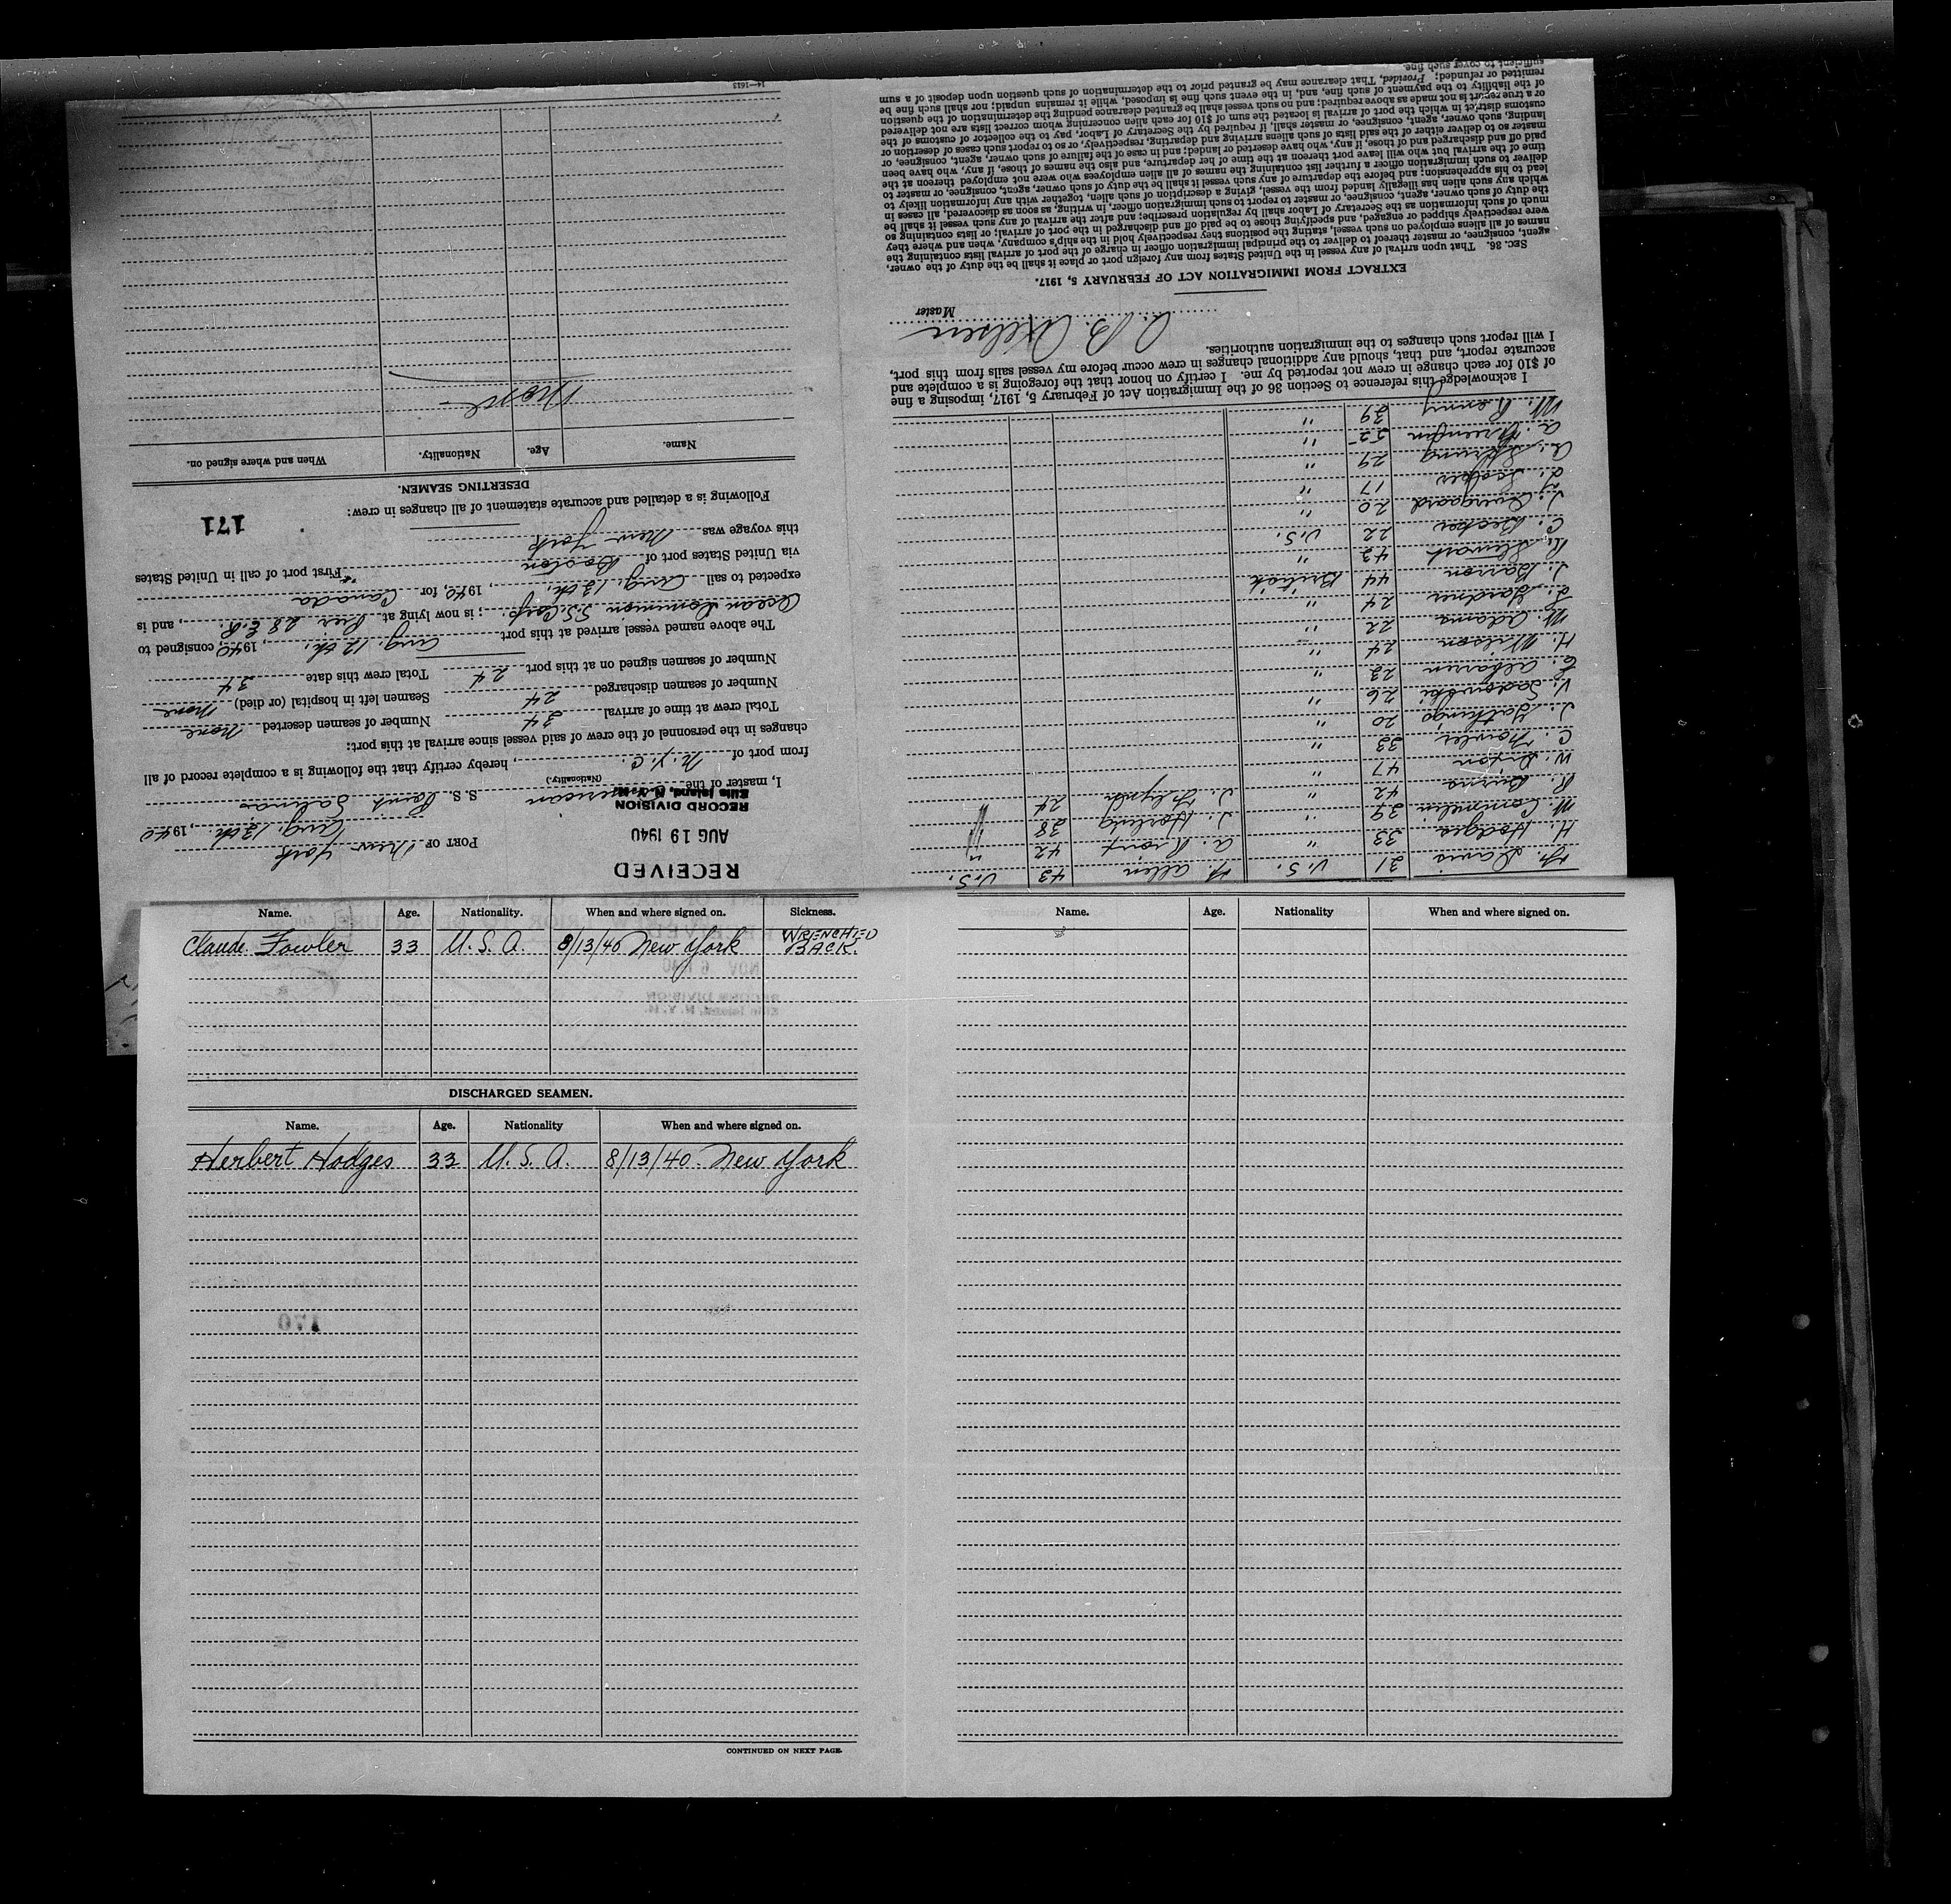 Name. Age. Nationality. When and where signed on. Sickness.
Claude Fowler 33 U.S.A. 8/13/40 New York WRENCHED BACK.
DISCHARGED SEAMEN.
Name. Age. Nationality When and where signed on.
Herbert Hodges 33 U.S.A. 8/13/40. New York
CONTINUED ON NEXT PAGE.
Name. Age. Nationality When and where signed on.
RECEIVED
AUG 19 1940
RECORD DIVISION
Ellis Island, N.Y.H.
PORT OF New York
Aug. 13th, 1940
I, master of the American S. S. Point Salinas
(Nationality.)
from port of N.Y.C., hereby certify that the following is a complete record of all
changes in the personnel of the crew of said vessel since arrival at this port:
Total crew at time of arrival 34 Number of seamen deserted None
Number of seamen discharged 24 Seamen left in hospital (or died) None
Number of seamen signed on at this port 24 Total crew this date 34
The above named vessel arrived at this port Aug. 12th, 1940, consigned to
Ocean Dominion S.S. Corp.; is now lying at Pier 28 E.R., and is
expected to sail Aug. 13th, 1940, for Canada
via United States port of Boston First port of call in United States
this voyage was New York
Following is a detailed and accurate statement of all changes in crew:
171
DESERTING SEAMEN.
Name. Age. Nationality. When and where signed on.
None
14—1613
Davis 31 U.S. Allen 43 U.S.
H. Hodges 33 " A. 42 "
M. 39 " J. 38 "
R. Burns 42 " J. Flynn 24 "
W. Dixon 47 "
C. Fowler 33 "
J. 20 "
V. Sadowski 26 "
E. 23 "
H. Wilson 24 "
M. Adams 22 "
F. Gardner 24 "
J. Barron 44 British
R. Stewart 43 "
C. Becker 22 U.S.
J. 20 "
17 "
A. 29 "
A. 52 "
M. Kenny 39 "
I acknowledge this reference to Section 36 of the Immigration Act of February 5, 1917, imposing a fine
of $10 for each change in crew not reported by me. I certify on honor that the foregoing is a complete and
accurate report, and that, should any additional changes in crew occur before my vessel sails from this port,
I will report such changes to the immigration authorities.
Master
EXTRACT FROM IMMIGRATION ACT OF FEBRUARY 5, 1917.
SEC. 36. That upon arrival of any vessel in the United States from any foreign port or place it shall be the duty of the owner,
agent, consignee, or master thereof to deliver to the principal immigration officer in charge of the port of arrival lists containing the
names of all aliens employed on such vessel, stating the positions they respectively hold in the ship's company, when and where they
were respectively shipped or engaged, and specifying those to be paid off and discharged in the port of arrival; or lists containing so
much of such information as the Secretary of Labor shall by regulation prescribe; and after the arrival of any such vessel it shall be
the duty of such owner, agent, consignee, or master to report to such immigration officer, in writing, as soon as discovered, all cases in
which any such alien has illegally landed from the vessel, giving a description of such alien, together with any information likely to
lead to his apprehension; and before the departure of any such vessel it shall be the duty of such owner, agent, consignee, or master to
deliver to such immigration officer a further list containing the names of all alien employees who were not employed thereon at the
time of the arrival but who will leave port thereon at the time of her departure, and also the names of those, if any, who have been
paid off and discharged, and of those, if any, who have deserted or landed; and in case of the failure of such owner, agent, consignee, or
master so to deliver either of the said lists of such aliens arriving and departing, respectively, or so to report such cases of desertion or
landing, such owner, agent, consignee, or master shall, if required by the Secretary of Labor, pay to the collector of customs of the
customs district in which the port of arrival is located the sum of $10 for each alien concerning whom correct lists are not delivered
or a true report is not made as above required; and no such vessel shall be granted clearance pending the determination of the question
of the liability to the payment of such fine, and, in the event such fine is imposed, while it remains unpaid; nor shall such fine be
remitted or refunded; Provided, That clearance may be granted prior to the determination of such question upon deposit of a sum
sufficient to cover such fine.